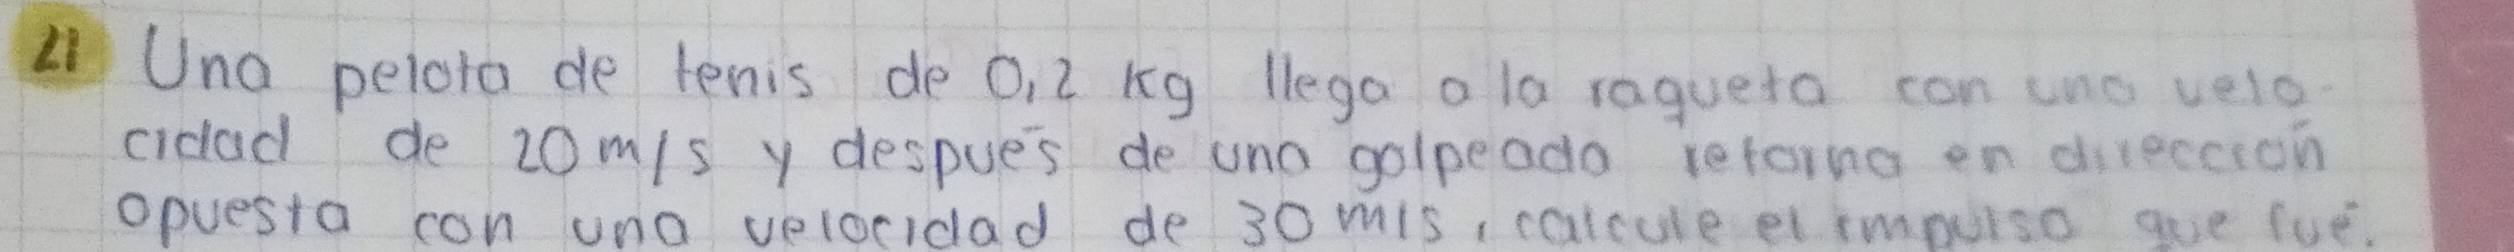 21 Una pelota de tenis de 0,2 kg llega a la raqueta con una velo-
cidad de 20 m/s y después de una golpeada retorna en dirección
opuesta con una velocidad de 30 m/s, calcule el impulso que fue.